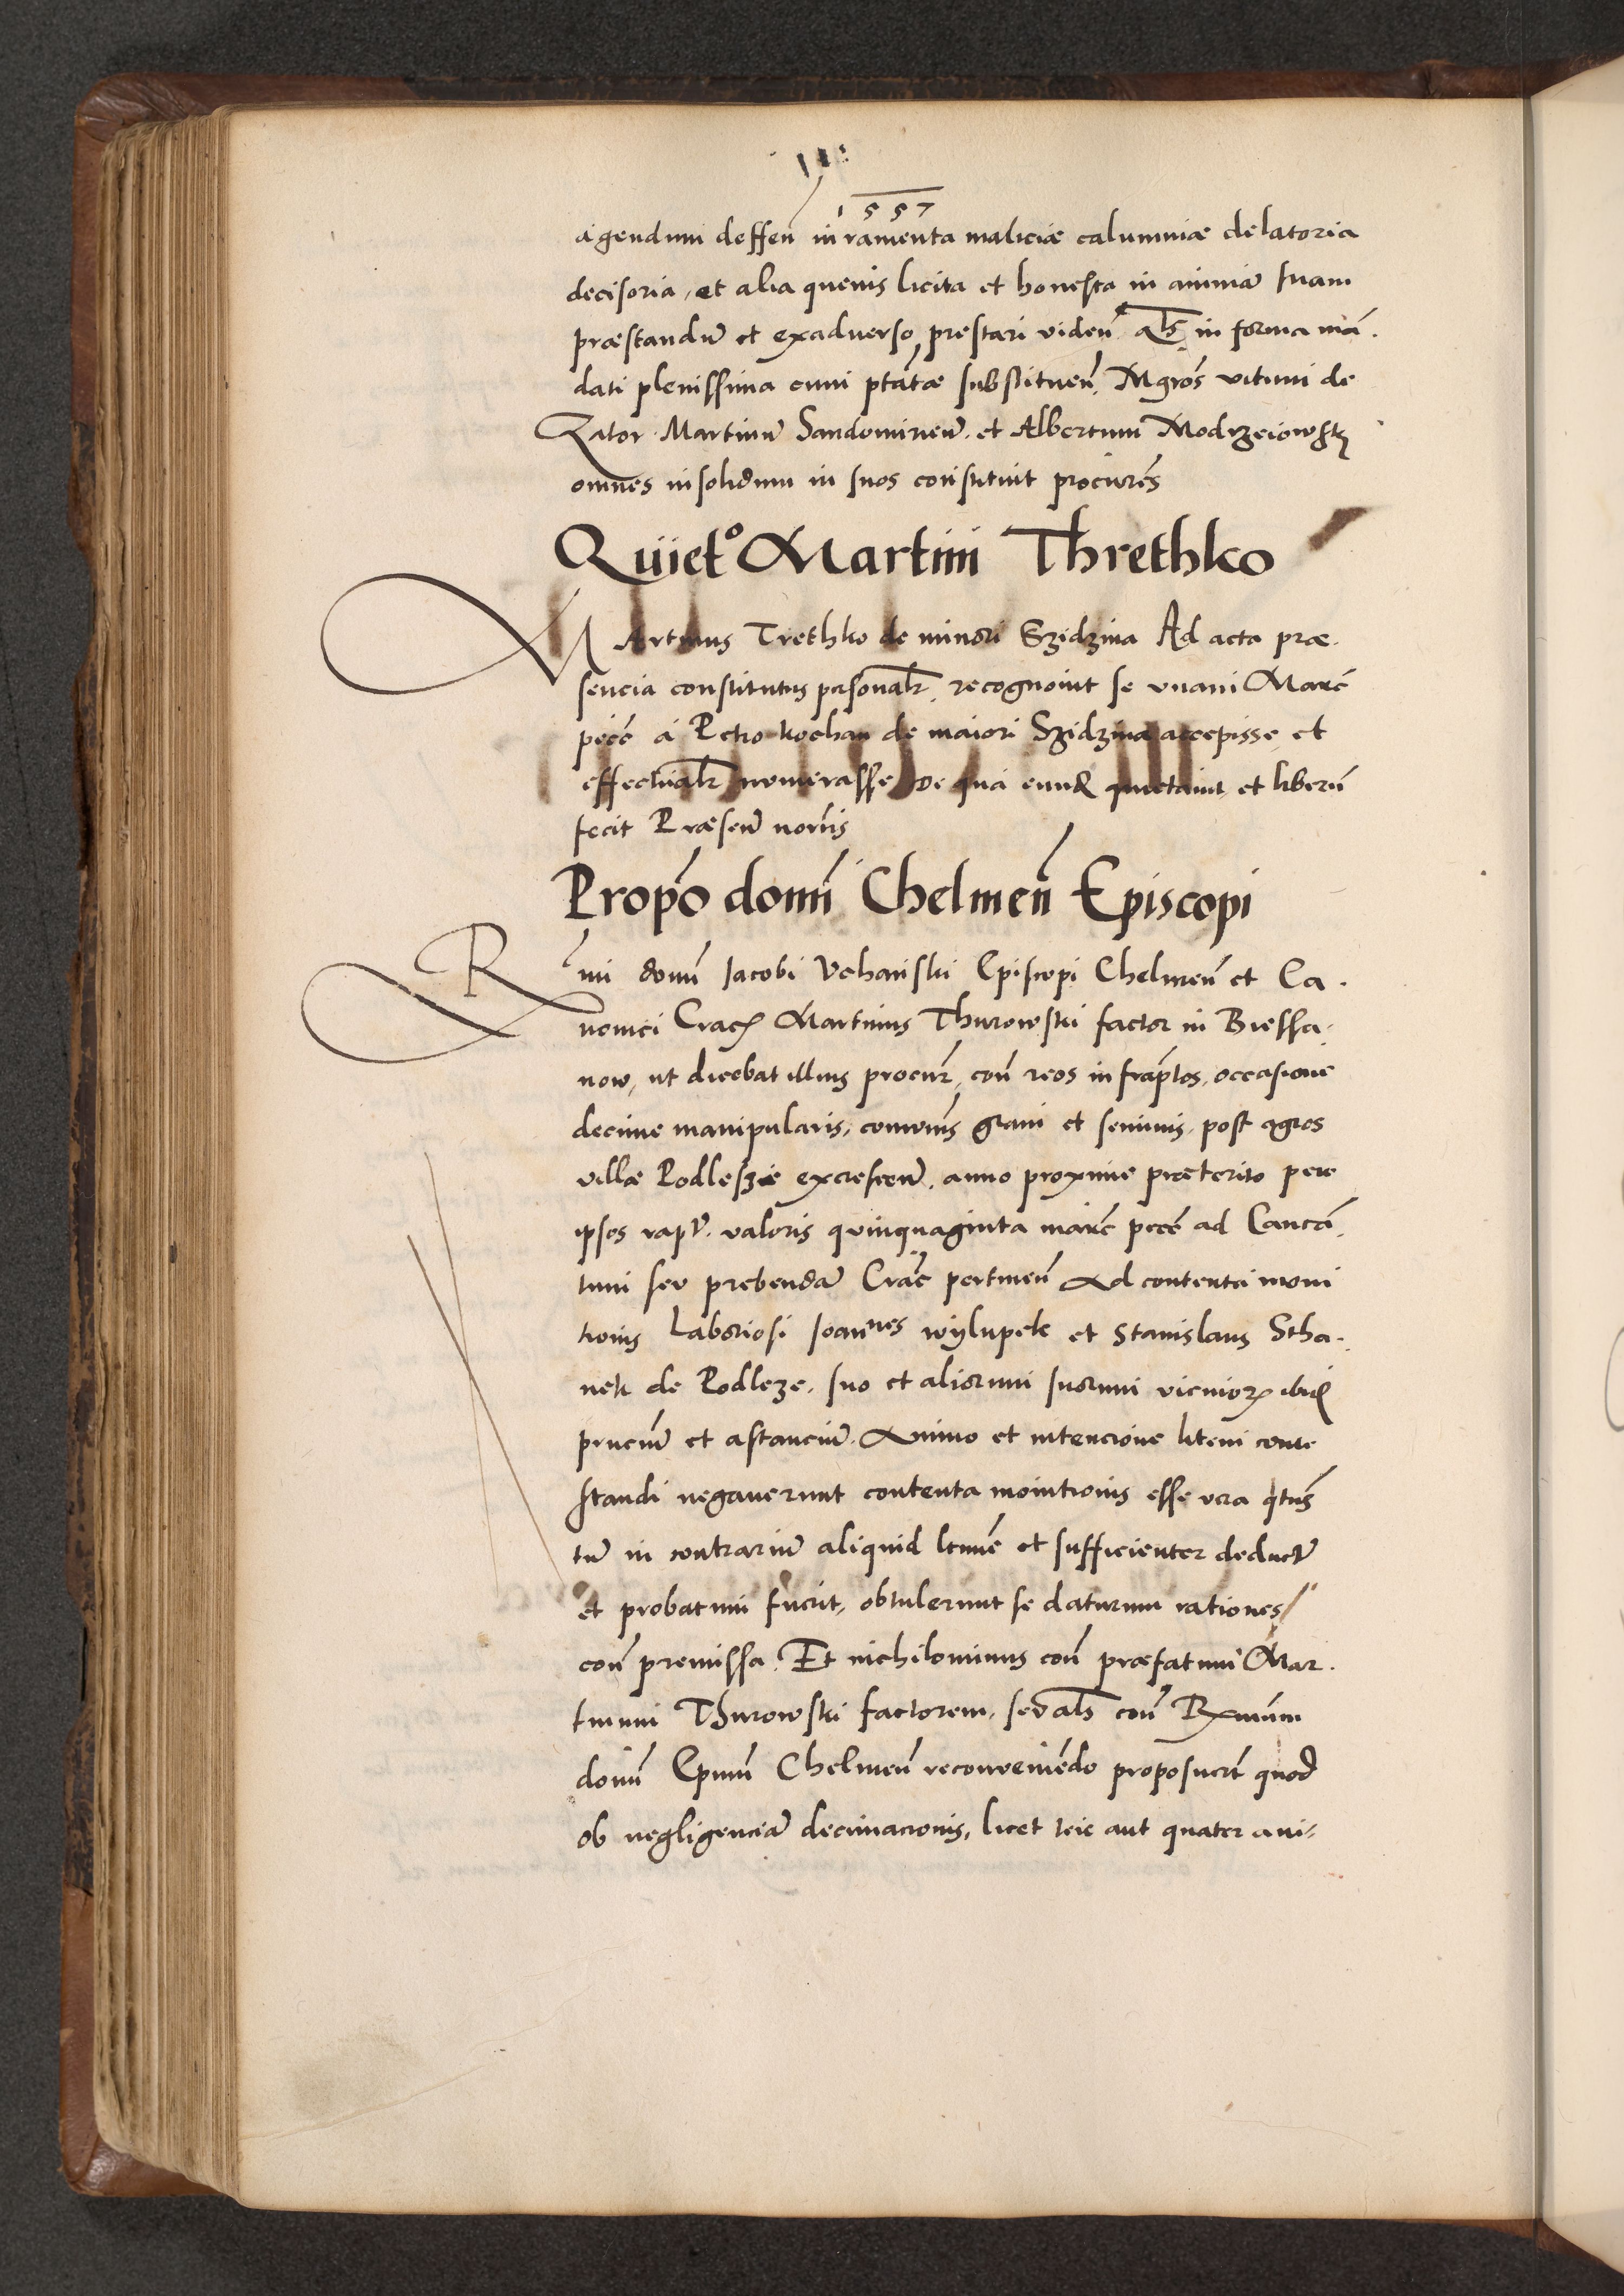 1557
agendum deffen̄ iuramenta maliciæ calumniæ delatoria
decisoria, et alia quevis licita et honesta in animā suam
præstandū et exadverso prestari viden̄ als in forma mā
dati plenissima cum ptāte substituen̄ Mgros vitum de
Zator Martinū Sandomirien̄ et Albertum Modrzeiowsky
omnes insolidum in suos constituit procures
Quiet° Martini Threthko
Martinus Trethko de minori Szidzina Ad acta præ
sencia constitutus personalr recognovit se unam Marc̄
pec̄c̄ á Petro kochan de maiori Szidzina accepisse et
effectualr numerasse De qua eund̄ quietavit et liberū
fecit Præsen̄ nor̄is
Propō domī Chelmen̄ Episcopi
Rmi domī Jacobi Uchanski Episcopi Chelmen̄ et Ca
nonici Crac̄ Martinus Thurowski factor in Biessa
now, ut dicebat illius procur̄, con̄ reos infrāptos, occasione
decime manipularis, comunis grani et seminis, post agros
villæ Podleszie excrescen̄, anno proxime præterito per
ipsos rapt̄ valoris quinquaginta marc̄ pec̄c̄ ad Canca
tum seu prebendā Crac̄ pertinen̄ Ad contenta moni
tionis Laboriosi Joannes wylupek et Stanislaus Stha
nek de Podleze, suo et aliorum suorum vicinior̄ ibid̄
prnciū et astanciū Animo et intencione litem conte
standi negaverunt contenta monitionis esse vera qtus̄
tū in contrariū aliquid ltime et sufficienter deductū
et probatum fuerit, obtulerunt se daturum rationes
con̄ premissa Et nichilominus con̄ præfatum Mar
tinum Thurowski factorem, seu als con̄ Rxmum
domī Epmū Chelmen̄ reconveniēdo proposuerūt quod
ob negligenciā decimacionis, licet teic aut quater avi